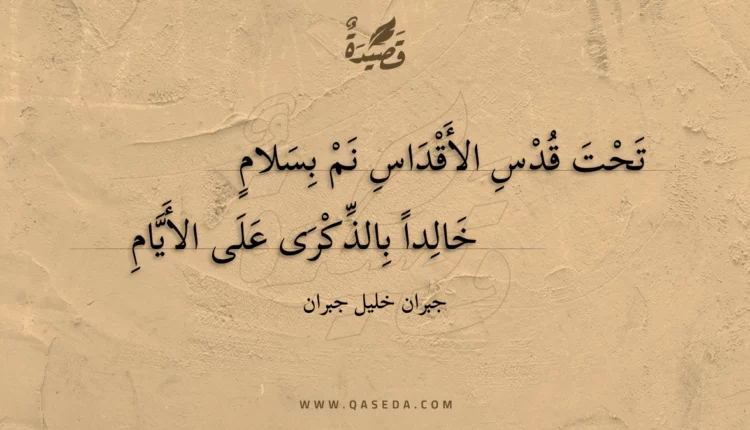 قَصِيدَةٌ
تَحْتَ قُدْسِ الأَقْدَاسِ نَمْ بِسَلامٍ
خَالِداً بِالذِّكْرَى عَلَى الأَيَّامِ
جبران خليل جبران
WWW.QASEDA.COM